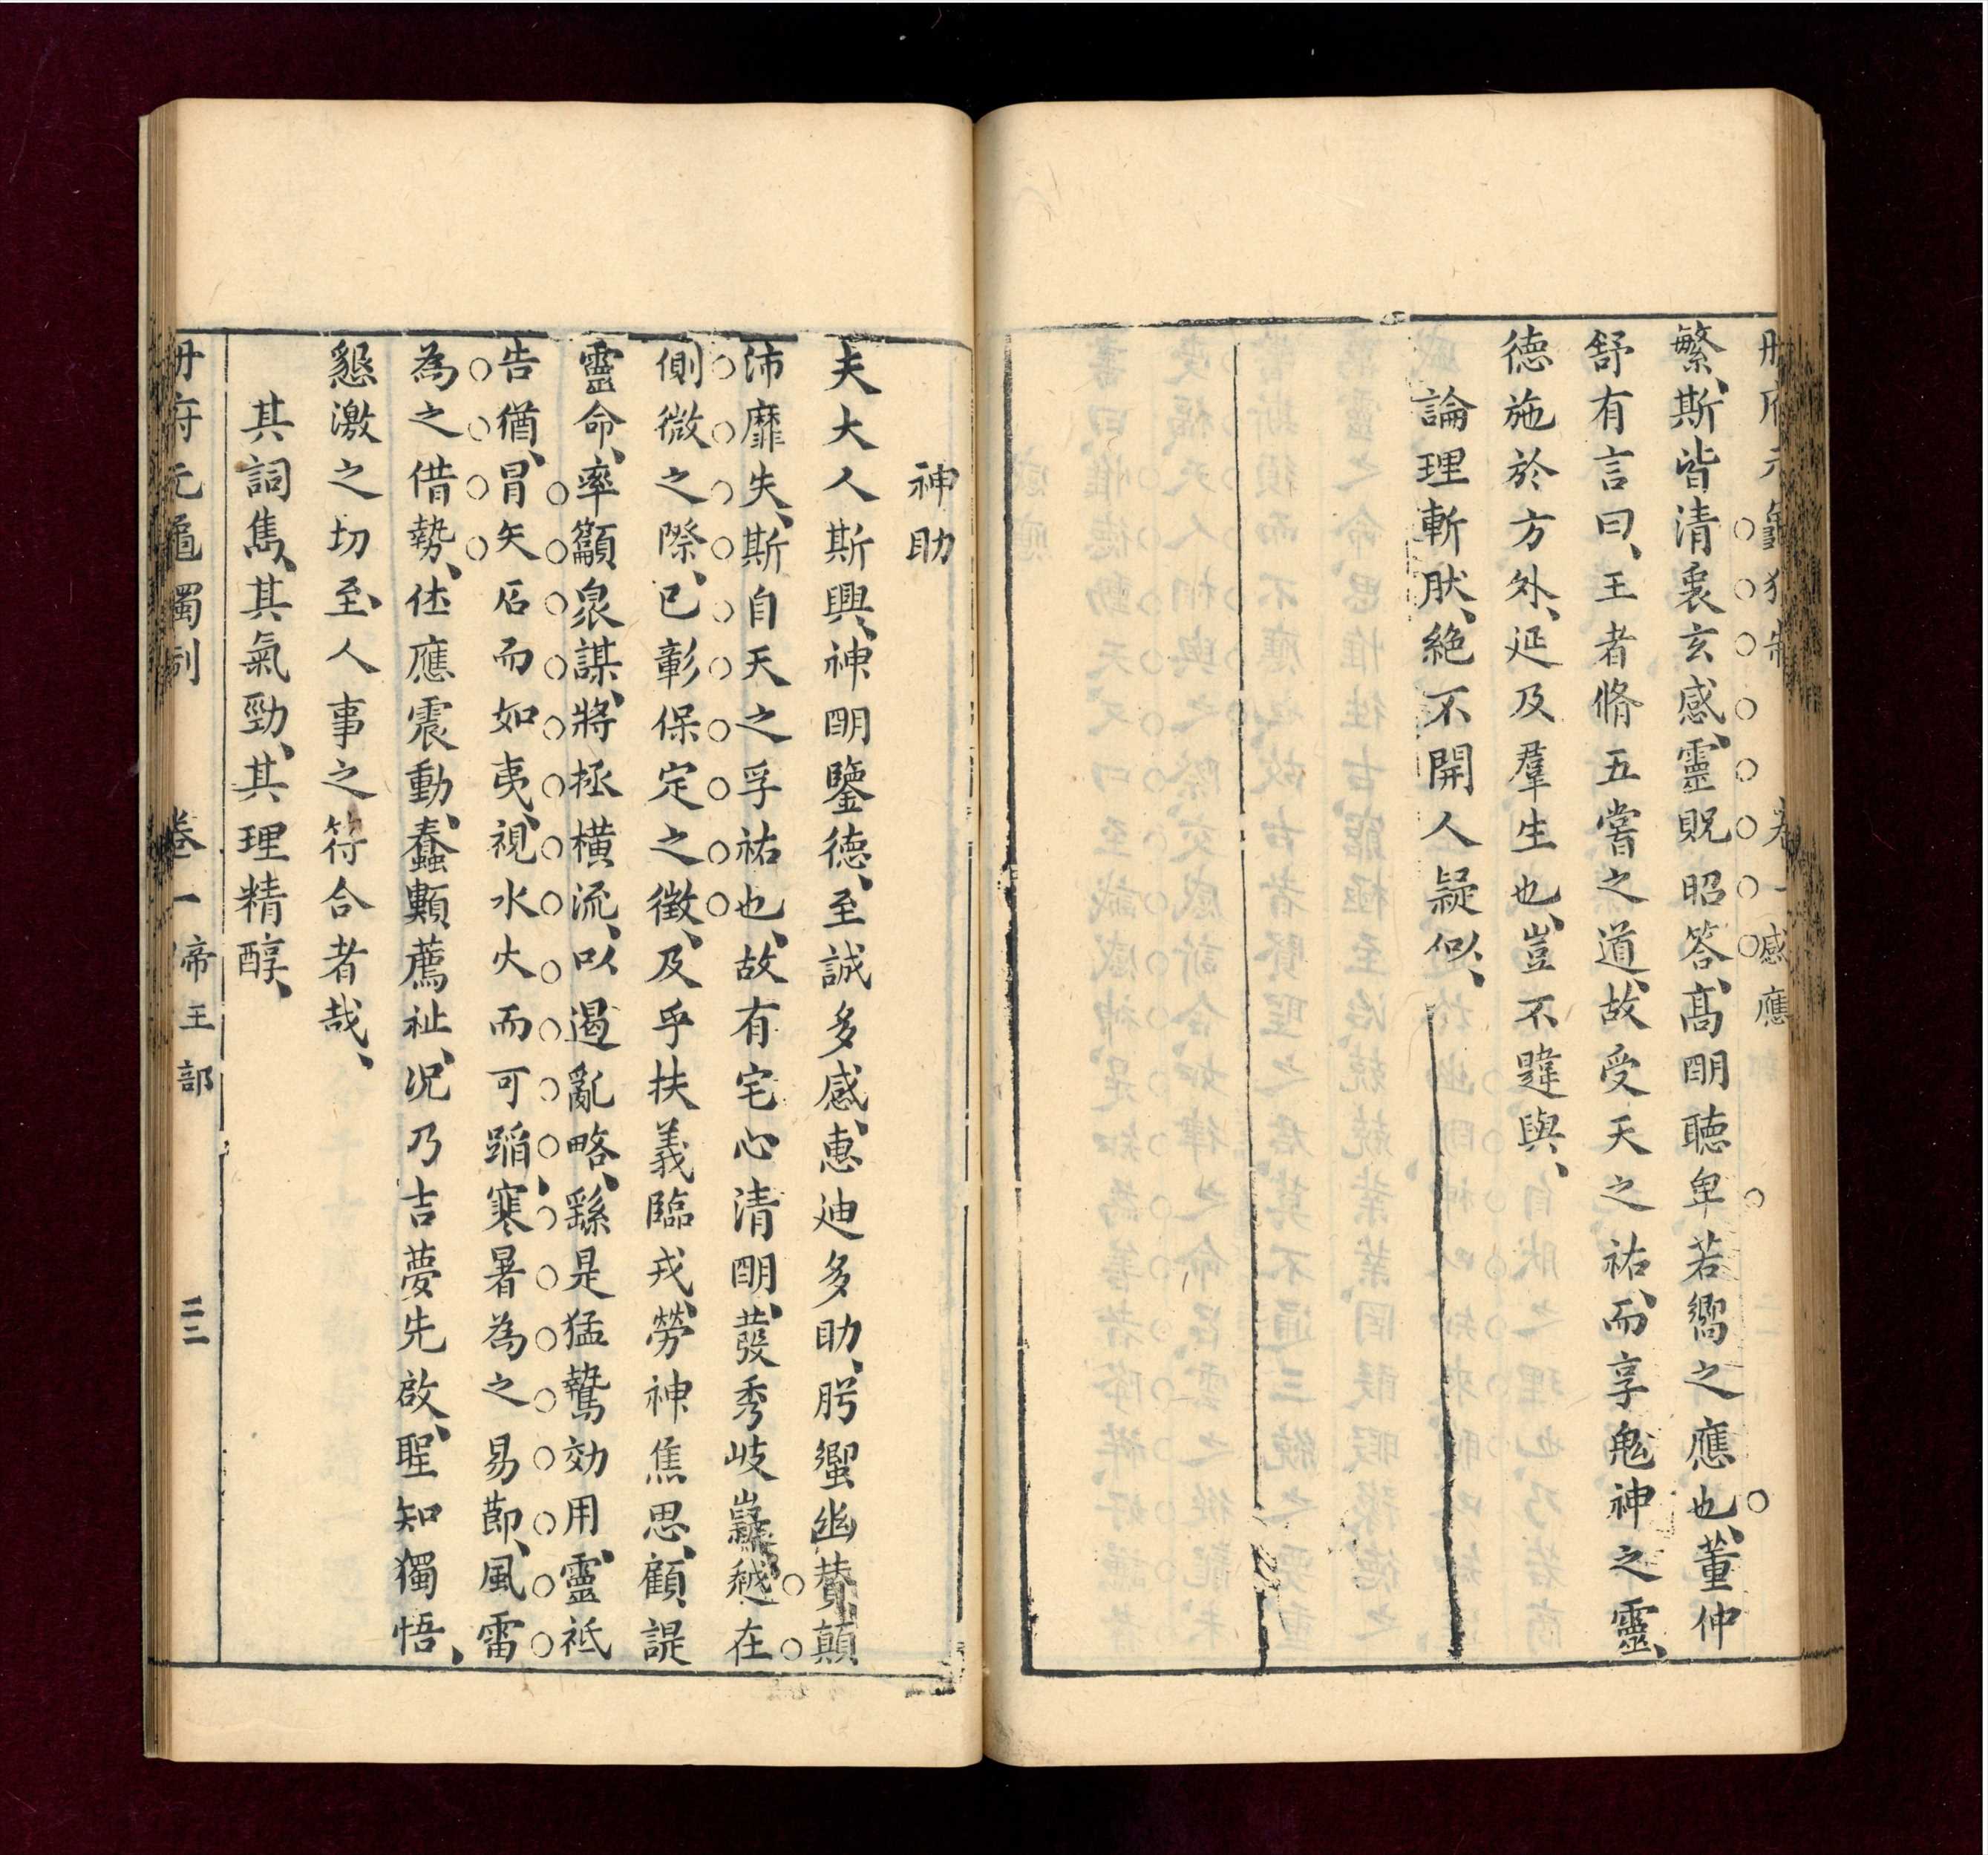 冊府元龜獨制 卷一感應
繁、斯皆清衷玄感、靈貺昭答、高明聽卑若嚮之應也、董仲
舒有言曰、王者脩五嘗之道、故受天之祐、而享鬼神之靈、
德施於方外、延及羣生也、豈不韙與、
論理斬肰、絕不開人疑似、
神助
夫大人斯興、神明鑒德、至誠多感、惠迪多助、肸蠁幽贊、顛
沛靡失、斯自天之孚祐也、故有宅心清明、發秀岐嶷、越在
側微之際、已彰保定之徵、及乎扶義臨戎、勞神焦思、顧諟
靈命、率籲衆謀、將拯橫流、以遏亂略、繇是猛鷙効用、靈祗
告猶、冒矢石而如夷、視水火而可蹈、寒暑為之易節、風雷
為之借勢、佐應震動、蠢顆薦祉、况乃吉夢先啟、聖知獨悟、
懇激之切至、人事之符合者哉、
其詞雋、其氣勁、其理精醇、
冊府元龜獨制 卷一帝王部 二二